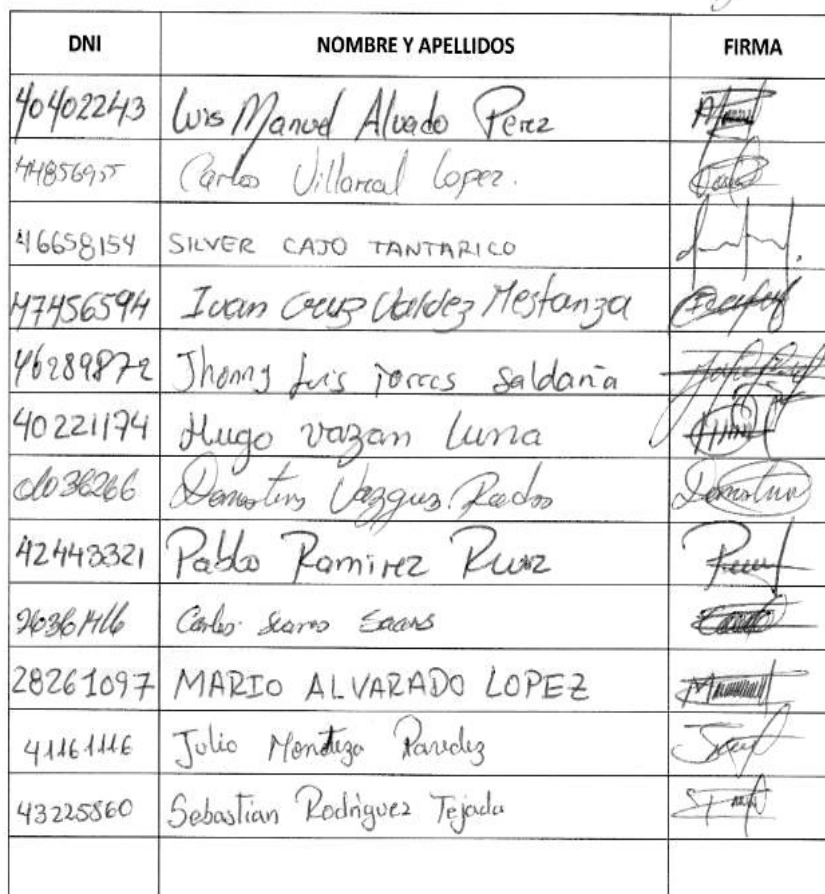 DNI NOMBRE Y APELLIDOS FIRMA
40402243 Luis Manuel Alvado Perez
44856955 Carlos Villareal Lopez.
46658154 SILVER CAJO TANTARICO
47456594 Ivan Cruz Valdez Mestanza
46289872 Jhonny Luis Torres Saldaña
40221174 Hugo vazan Luna
Vazquz
42443321 Pablo Ramirez Ruiz
Carlos
28261097 MARIO ALVARADO LOPEZ
41161116 Julio Mendoza Paredez
43225560 Sebastian Rodriguez Tejada